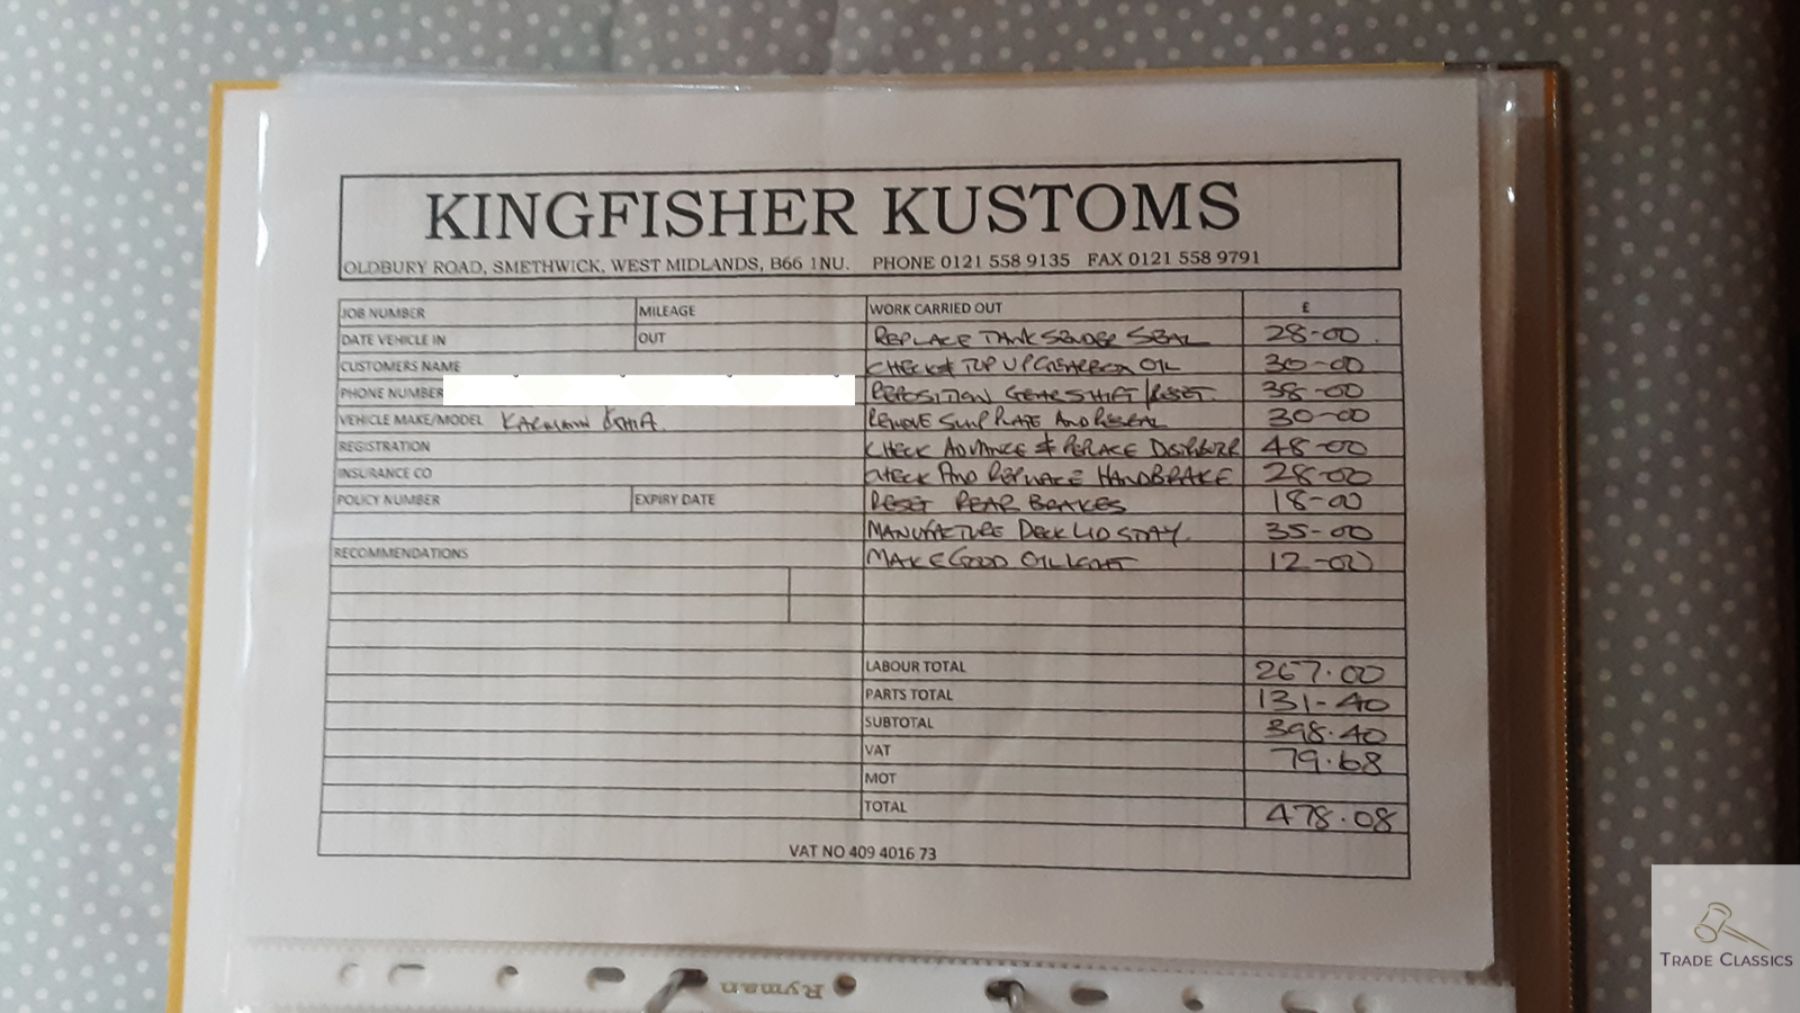 KINGFISHER KUSTOMS
OLDBURY ROAD, SMETHWICK, WEST MIDLANDS, B66 1NU. PHONE 0121 558 9135 FAX 0121 558 9791
JOB NUMBER MILEAGE WORK CARRIED OUT £
DATE VEHICLE IN OUT REPLACE TANK SENDER SEAL 28-00
CUSTOMERS NAME CHECK & TOP UP GEARBOX OIL 30-00
PHONE NUMBER REPOSITION GEARSHIFT/RESET 38-00
VEHICLE MAKE/MODEL KARMANN GHIA REMOVE SUMP PLATE AND RESEAL 30-00
REGISTRATION CHECK ADVANCE & REPLACE 48-00
INSURANCE CO CHECK AND REPLACE HANDBRAKE 28-00
POLICY NUMBER EXPIRY DATE RESET REAR BRAKES 18-00
MANUFACTURE DECK LID STAY. 35-00
RECOMMENDATIONS MAKE GOOD OIL 12-00
LABOUR TOTAL 267.00
PARTS TOTAL 131-40
SUBTOTAL 398.40
VAT 79.68
MOT
TOTAL 478.08
VAT NO 409 4016 73
Ryman
TRADE CLASSICS